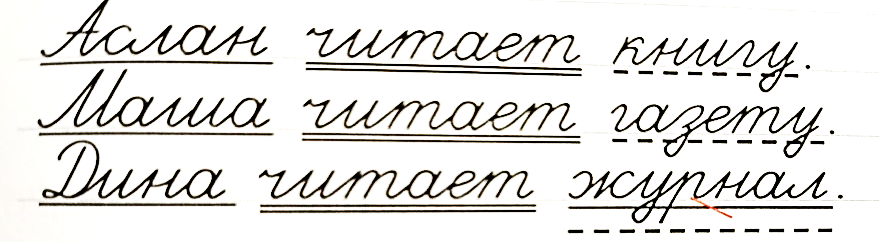 Аслан читает книгу.
Маша читает газету.
Дина читает журнал.